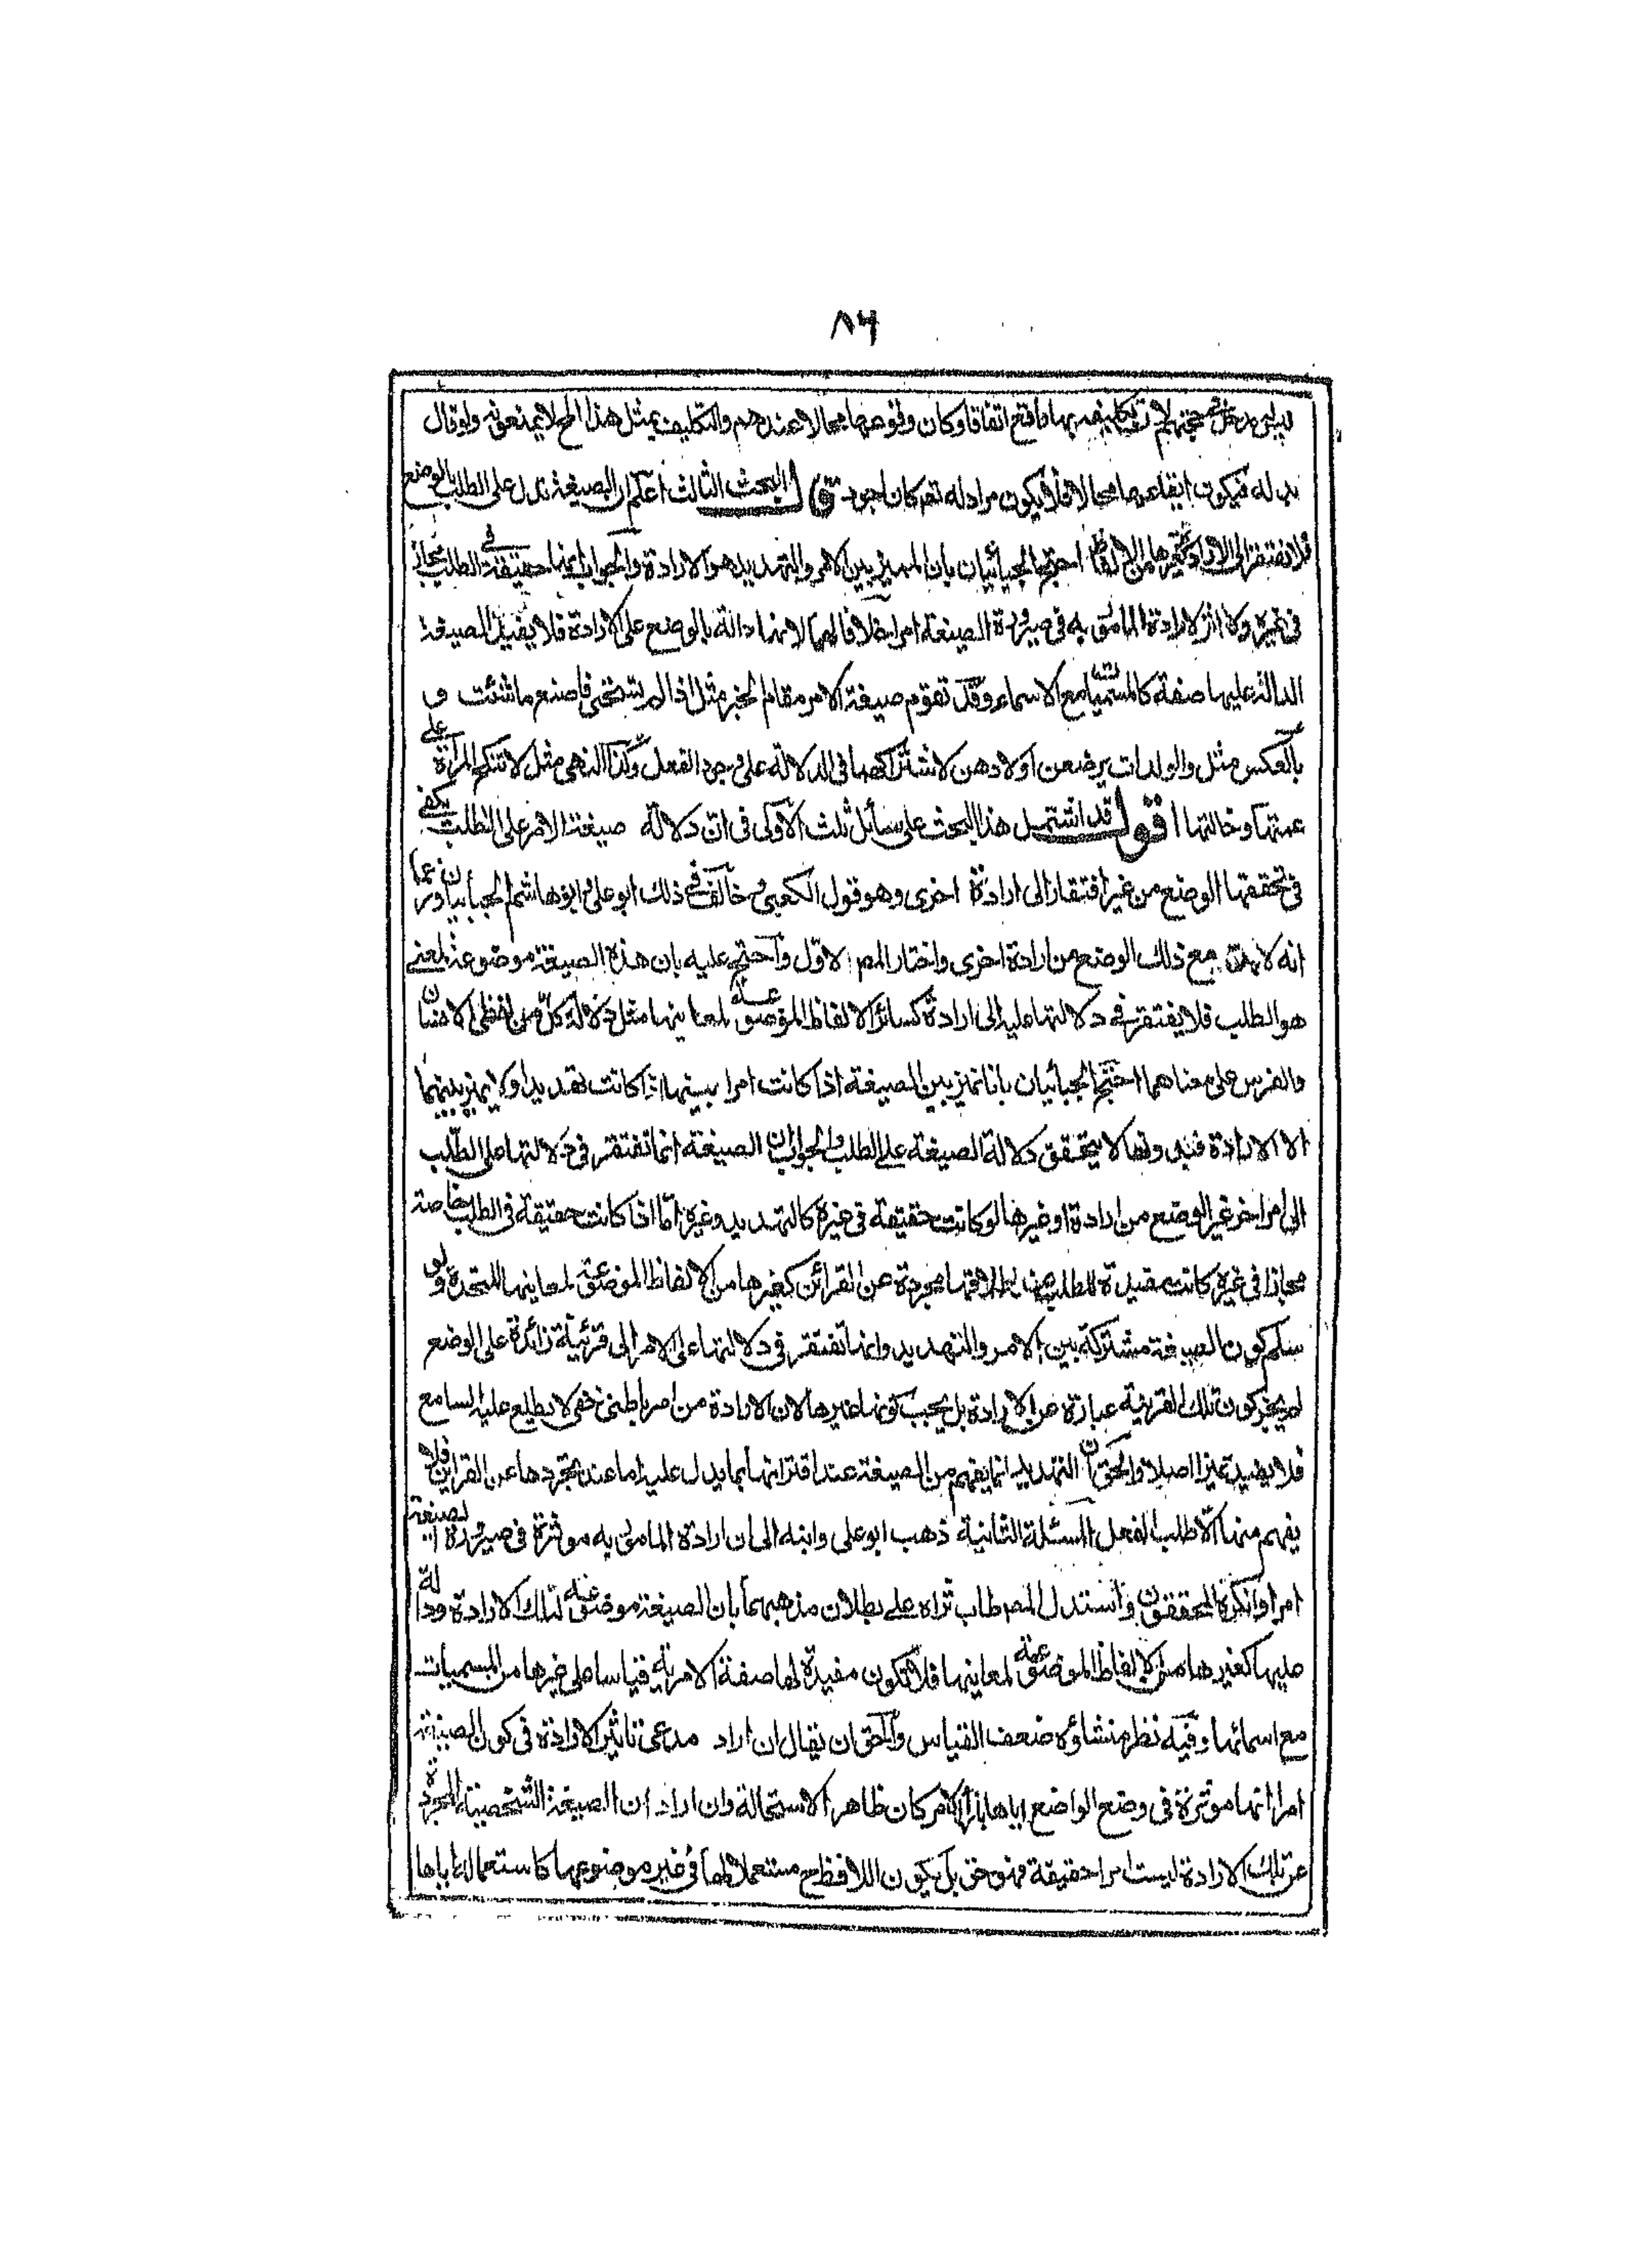 ٨٦
ليس من حججهم لان تكليفه بها واقع اتفاقا وكان وقوعها محالا عندهم والتكليف بمثل هذا المح لا يمنعونه ولو قال
بدله فيكون ايقاعها محالا فلا يكون مرادا له تعم كان اجود قال البحث الثالث اعلم ان الصيغة تدل على الطلب بالوضع
فلا تفتقر الى الارادة كغيرها من الالفاظ احتج الجبائيان بان المميز بين الامر والتهديد هو الارادة والجواب انها حقيقة في الطلب مجاز
في غيره ولا اثر لارادة المامور به في صيرورة الصيغة امرا خلافا لهما لانها دالة بالوضع على الارادة فلا يفيد الصيغة
الدالة عليها صفة كالمسميات مع الاسماء وقد تقوم صيغة الامر مقام الخبر مثل اذا لم تستحي فاصنع ما شئت و
بالعكس مثل والوالدات يرضعن اولادهن لاشتراكهما في الدلالة على وجود الفعل وكذا النهي مثل لا تنكح المرأة على
عمتها وخالتها اقول قد اشتمل هذا البحث على مسائل ثلث الاولى في ان دلالة صيغة الامر على الطلب يكفي
في تحققها الوضع من غير افتقار الى ارادة اخرى وهو قول الكعبي وخالف في ذلك ابو علي وابو هاشم الجبائيان وزعما
انه لا بد مع ذلك الوضع من ارادة اخرى واختار المص الاول واحتج عليه بان هذه الصيغة موضوعة لمعنى
هو الطلب فلا يفتقر في دلالتها عليه الى ارادة كسائر الالفاظ الموضوعة لمعانيها مثل دلالة كل من لفظي الانسان
والفرس على معناهما احتج الجبائيان بانا نميز بين الصيغة اذا كانت امرا وبينها اذا كانت تهديدا ولا يميز بينهما
الا الارادة فبدونها لا يتحقق دلالة الصيغة على الطلب والجواب ان الصيغة انما تفتقر في دلالتها على الطلب
الى امر اخر غير الوضع من ارادة او غيرها لو كانت حقيقة في غيره كالتهديد وغيره اما اذا كانت حقيقة في الطلب خاصة
مجازا في غيره كانت مفيدة للطلب عند اطلاقها مجردة عن القرائن كغيرها من الالفاظ الموضوعة لمعانيها المتحدة ولو
سلم كون الصيغة مشتركة بين الامر والتهديد وانها تفتقر في دلالتها على الامر الى قرينة زائدة على الوضع
لم يجز كون تلك القرينة عبارة عن الارادة بل يجب كونها غيرها لان الارادة من امر باطني خفي لا يطلع عليه السامع
فلا يفيد تميزا اصلا والحق ان التهديد انما يفهم من الصيغة عند اقترانها بما يدل عليه اما عند تجردها عن القراين فلا
يفهم منها الا طلب الفعل المسئلة الثانية ذهب ابو علي وابنه الى ان ارادة المامور به موثرة في صيرورة الصيغة
امرا وانكره المحققون واستدل المص طاب ثراه على بطلان مذهبهما بان الصيغة موضوعة لتلك الارادة ودالة
عليها كغيرها من الالفاظ الموضوعة لمعانيها فلا تكون مفيدة لها صفة الامرية قياسا على غيرها من المسميات
مع اسمائها وفيه نظر منشاؤه ضعف القياس والحق ان يقال ان اراد مدعى تاثير الارادة في كون الصيغة
امرا انها موثرة في وضع الواضع اياها بازاء الامر كان ظاهر الاستحالة وان اراد ان الصيغة الشخصية المجردة
عن تلك الارادة ليست امرا حقيقة فهو حق بل يكون اللافظ ح مستعملا لها في غير موضوعها كاستعماله اياها